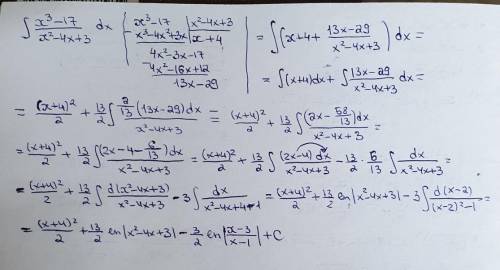 ∫ x³-17 / x²-4x+3 dx | x³-17 | x²-4x+3 = ∫(x+4+ 13x-29 / x²-4x+3) dx =
x³-4x²+3x | x+4
4x²-3x-17
4x²-16x+12
13x-29
= ∫(x+4)dx + ∫ 13x-29 / x²-4x+3 dx =
= (x+4)²/2 + 13/2 ∫ 2/13 (13x-29)dx / x²-4x+3 = (x+4)²/2 + 13/2 ∫ (2x - 58/13)dx / x²-4x+3 =
= (x+4)²/2 + 13/2 ∫ (2x-4-6/13)dx / x²-4x+3 = (x+4)²/2 + 13/2 ∫ (2x-4)dx / x²-4x+3 - 13/2 · 6/13 ∫ dx / x²-4x+3 =
= (x+4)²/2 + 13/2 ∫ d(x²-4x+3) / x²-4x+3 - 3 ∫ dx / x²-4x+4-1 = (x+4)²/2 + 13/2 ln|x²-4x+3| - 3 ∫ d(x-2) / (x-2)²-1 =
= (x+4)²/2 + 13/2 ln|x²-4x+3| - 3/2 ln|x-3 / x-1| + C